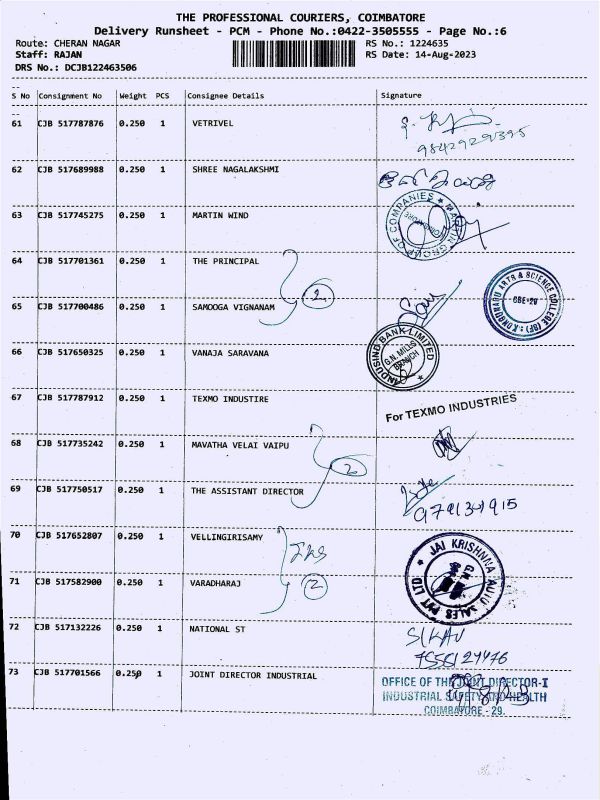 THE PROFESSIONAL COURIERS, COIMBATORE
Delivery Runsheet - PCM - Phone No.:0422-3505555 - Page No.:6
Route: CHERAN NAGAR RS No.: 1224635
Staff: RAJAN RS Date: 14-Aug-2023
DRS No.: DCJB122463506
S No Consignment No Weight PCS Consignee Details Signature
61 CJB 517787876 0.250 1 VETRIVEL
62 CJB 517689988 0.250 1 SHREE NAGALAKSHMI
63 CJB 517745275 0.250 1 MARTIN WIND
MARTIN GROUP OF COMPANIES
COIMBATORE
64 CJB 517701361 0.250 1 THE PRINCIPAL
2
KONGUNADU ARTS & SCIENCE COLLEGE
CBE-29
65 CJB 517700486 0.250 1 SAMOOGA VIGNANAM
66 CJB 517650325 0.250 1 VANAJA SARAVANA
INDUSIND BANK LIMITED
G.N. MILLS
BRANCH
67 CJB 517787912 0.250 1 TEXMO INDUSTIRE
For TEXMO INDUSTRIES
68 CJB 517735242 0.250 1 MAVATHA VELAI VAIPU
2
69 CJB 517750517 0.250 1 THE ASSISTANT DIRECTOR
70 CJB 517652807 0.250 1 VELLINGIRISAMY
JAI KRISHNNA AUTO SALES PVT LTD
71 CJB 517582900 0.250 1 VARADHARAJ
2
72 CJB 517132226 0.250 1 NATIONAL ST
73 CJB 517701566 0.250 1 JOINT DIRECTOR INDUSTRIAL
OFFICE OF THE JOINT DIRECTOR-I
INDUSTRIAL SAFETY AND HEALTH
COIMBATORE - 29.